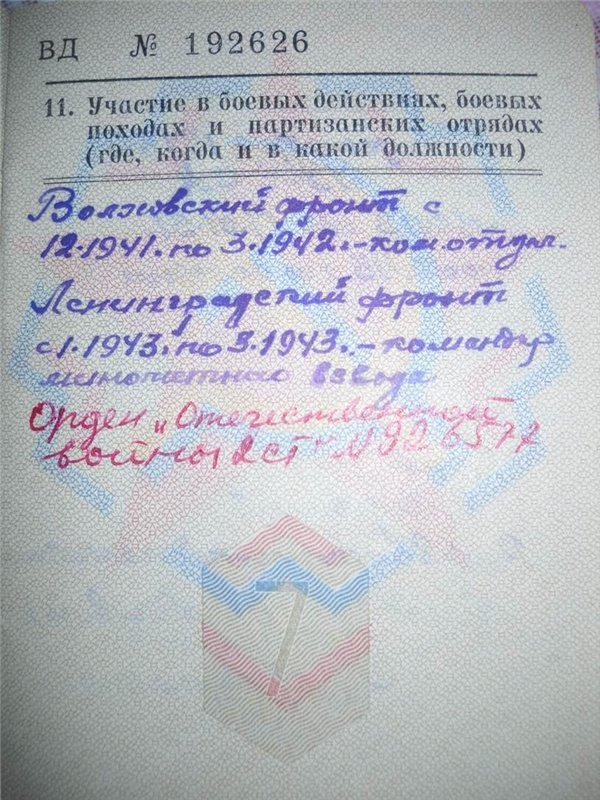 ВД № 192626
11. Участие в боевых действиях, боевых
походах и партизанских отрядах
(где, когда и в какой должности)
Волховский фронт с
12.1941. по 3.1942. - ком. отдел.
Ленинградский фронт
с 1.1943. по 3.1943. - командир
минометного взвода
Орден „Отечественной
войны 2 ст" № 926577
7